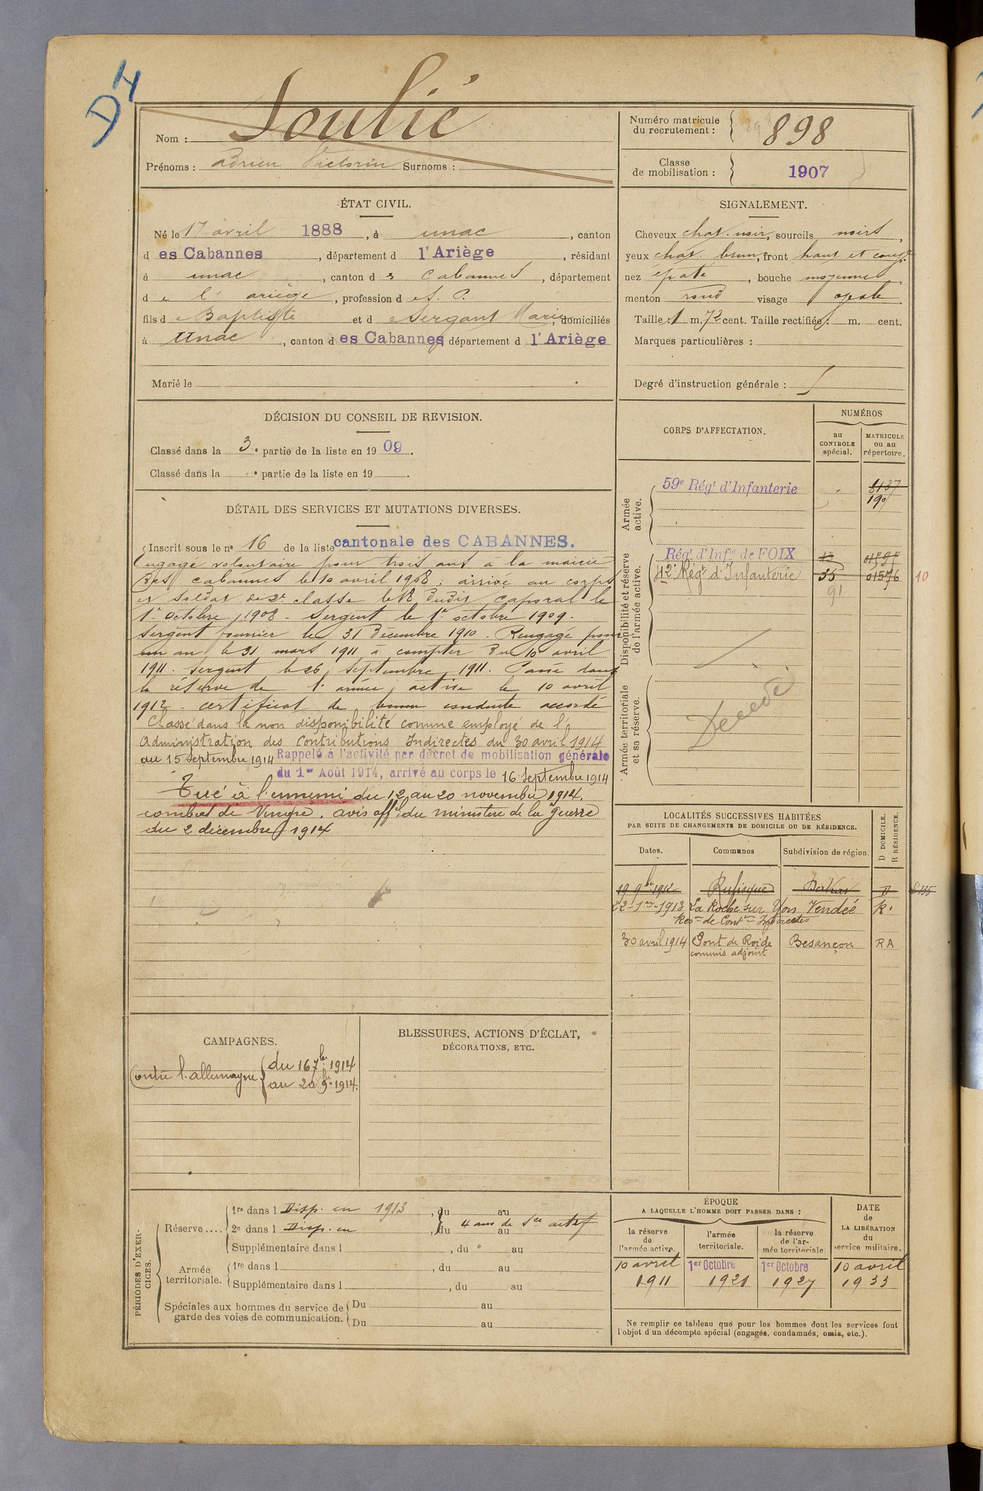 D4
Nom : Soulié
Prénoms : Adrien Victorin Surnoms :
Numéro matricule du recrutement : 898
Classe de mobilisation : 1907
ÉTAT CIVIL.
Né le 17 avril 1888, à unac, canton
des Cabannes, département d l'Ariège, résidant
à unac, canton d s Cabannes, département
d e l'ariège, profession d
fils d Baptiste et d Sergant Marie, domiciliés
à Unac, canton des Cabannes, département d l'Ariège
Marié le
SIGNALEMENT.
Cheveux chat. noir, sourcils noirs,
yeux chat. brun, front haut et
nez épaté, bouche moyenne
menton rond visage ovale
Taille : 1 m. 72 cent. Taille rectifiée : m. cent.
Marques particulières :
Degré d'instruction générale :
DÉCISION DU CONSEIL DE REVISION.
Classé dans la 3e partie de la liste en 1909.
Classé dans la partie de la liste en 19
CORPS D'AFFECTATION.
NUMÉROS
au CONTROLE spécial.
MATRICULE ou au répertoire.
Armée active.
59e Régt d'Infanterie
8137
190
Disponibilité et réserve de l'armée active.
Régt d'Infie de FOIX
42e Régt d'Infanterie 35 01576 10
91
Armée territoriale et sa réserve.
Décédé
DÉTAIL DES SERVICES ET MUTATIONS DIVERSES.
Inscrit sous le n° 16 de la liste cantonale des CABANNES.
Engagé volontaire pour trois ans à la mairie
des Cabannes le 10 avril 1908; arrivé au corps
et soldat de 2e classe le dudit caporal le
1er octobre 1908. Sergent le 1er octobre 1909.
Sergent fourrier le 31 décembre 1910. Rengagé pour
un an le 31 mars 1911 à compter du 10 avril
1911. Sergent le 26 septembre 1911. Passé dans
la réserve de l'armée active le 10 avril
1912. certificat de bonne conduite accordé
Classé dans la non disponibilité comme employé de l'
Administration des Contributions Indirectes du 30 avril 1914
au 15 septembre 1914 Rappelé à l'activité par décret de mobilisation générale
du 1er Août 1914, arrivé au corps le 16 septembre 1914
Tué à l'ennemi du 12 au 20 novembre 1914.
combat de Vingré. avis offel du ministère de la guerre
du 2 décembre 1914
LOCALITÉS SUCCESSIVES HABITÉES
PAR SUITE DE CHANGEMENTS DE DOMICILE OU DE RÉSIDENCE.
Dates. Communes Subdivision de région. D DOMICILE. R RÉSIDENCE.
19 9bre 1912 Rufisque Dakar D
22-1er-1913 La Roche sur Yon Vendée R.
30 avril 1914 Pont de Roide Besançon RA
commis adjoint
CAMPAGNES.
Contre l'allemagne du 16 7bre 1914
au 20 9bre 1914.
BLESSURES, ACTIONS D'ÉCLAT,
DÉCORATIONS, ETC.
PÉRIODES D'EXERCICES.
Réserve....
1re dans l Disp. en 1913, du au
2e dans l Disp. en, du au
4 ans de sce actif
Supplémentaire dans l, du au
Armée territoriale.
1re dans l, du au
Supplémentaire dans l, du au
Spéciales aux hommes du service de garde des voies de communication.
Du au
Du au
ÉPOQUE
A LAQUELLE L'HOMME DOIT PASSER DANS :
la réserve de l'armée active.
l'armée territoriale.
la réserve de l'armée territoriale
DATE DE LA LIBÉRATION du service militaire.
10 avril 1911
1er Octobre 1921
1er Octobre 1927
10 avril 1933
Ne remplir ce tableau que pour les hommes dont les services font
l'objet d'un décompte spécial (engagés, condamnés, omis, etc.).